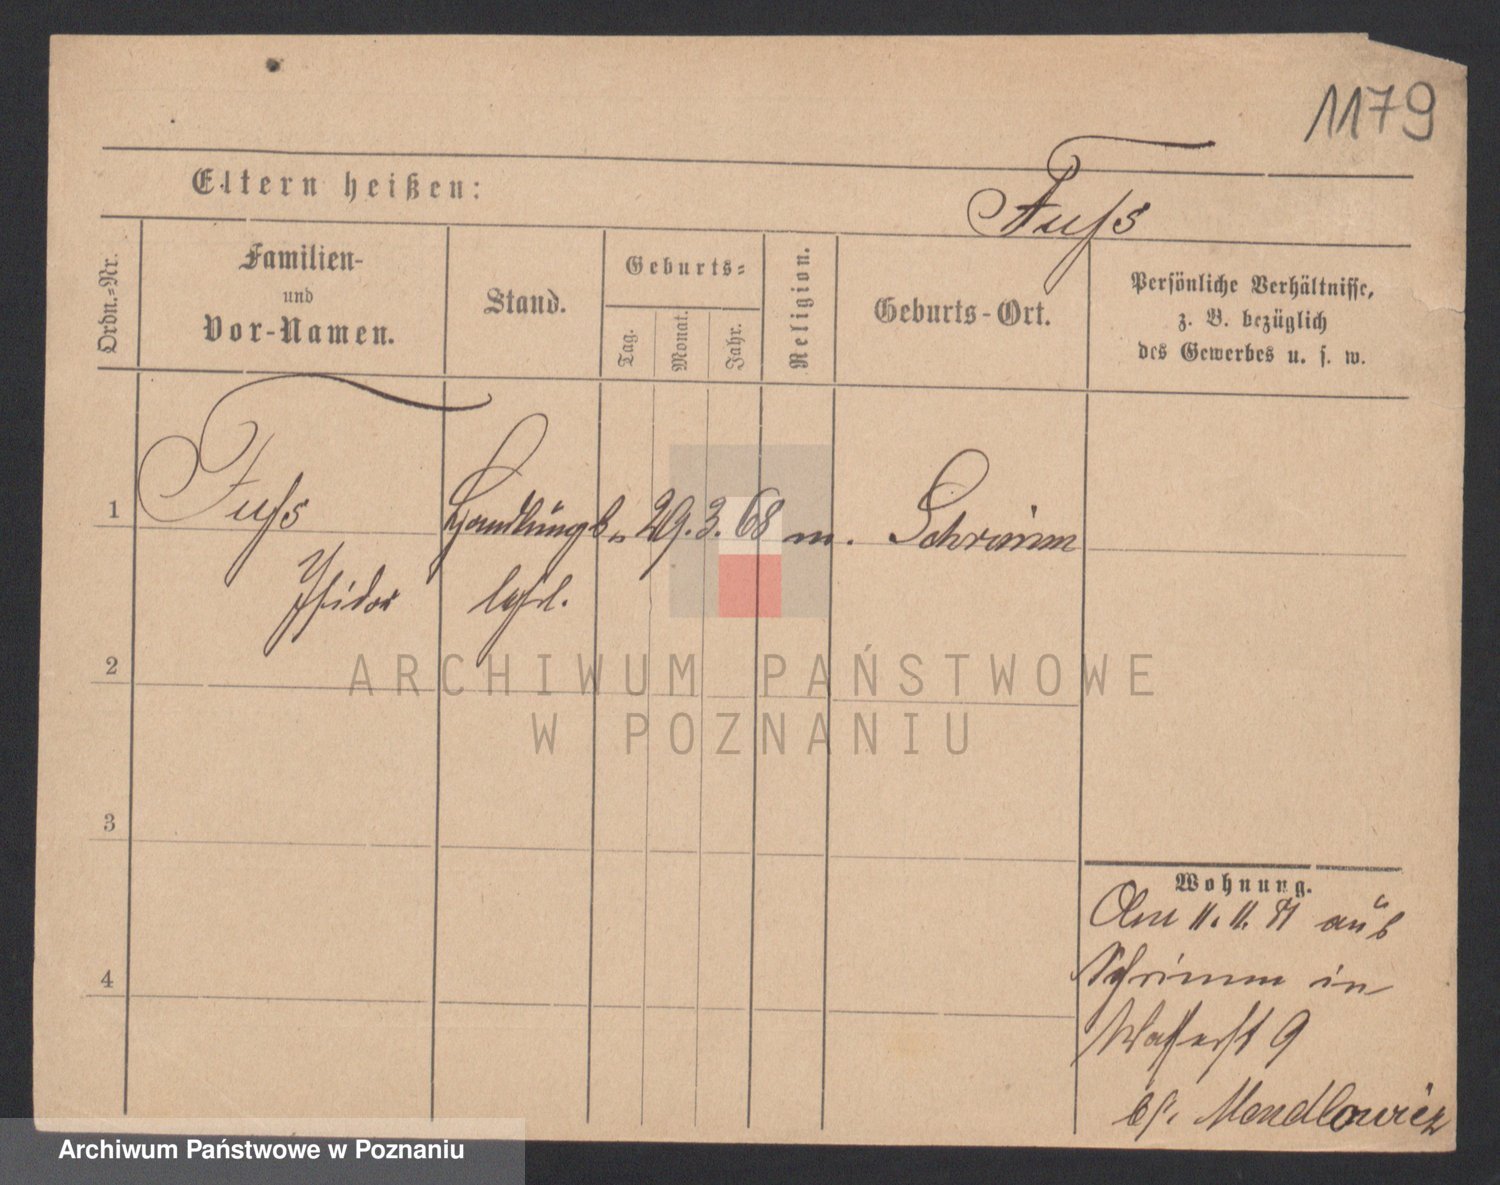 1179
Eltern heißen:
Fuss
Ordn.-Nr.
Familien-
und
Vor-Namen.
Stand.
Geburts-
Tag.
Monat.
Jahr.
Religion.
Geburts-Ort.
Persönliche Verhältnisse,
z. B. bezüglich
des Gewerbes u. s. w.
1 Fuss Handlungs- 29. 3. 68 m. Schrimm
Isidor lehrl.
2
3
4
ARCHIWUM PAŃSTWOWE
W POZNANIU
Wohnung.
Am 11. 11. aus
Schrimm in
Wasserst 9
bs. Mendlowicz
Archiwum Państwowe w Poznaniu